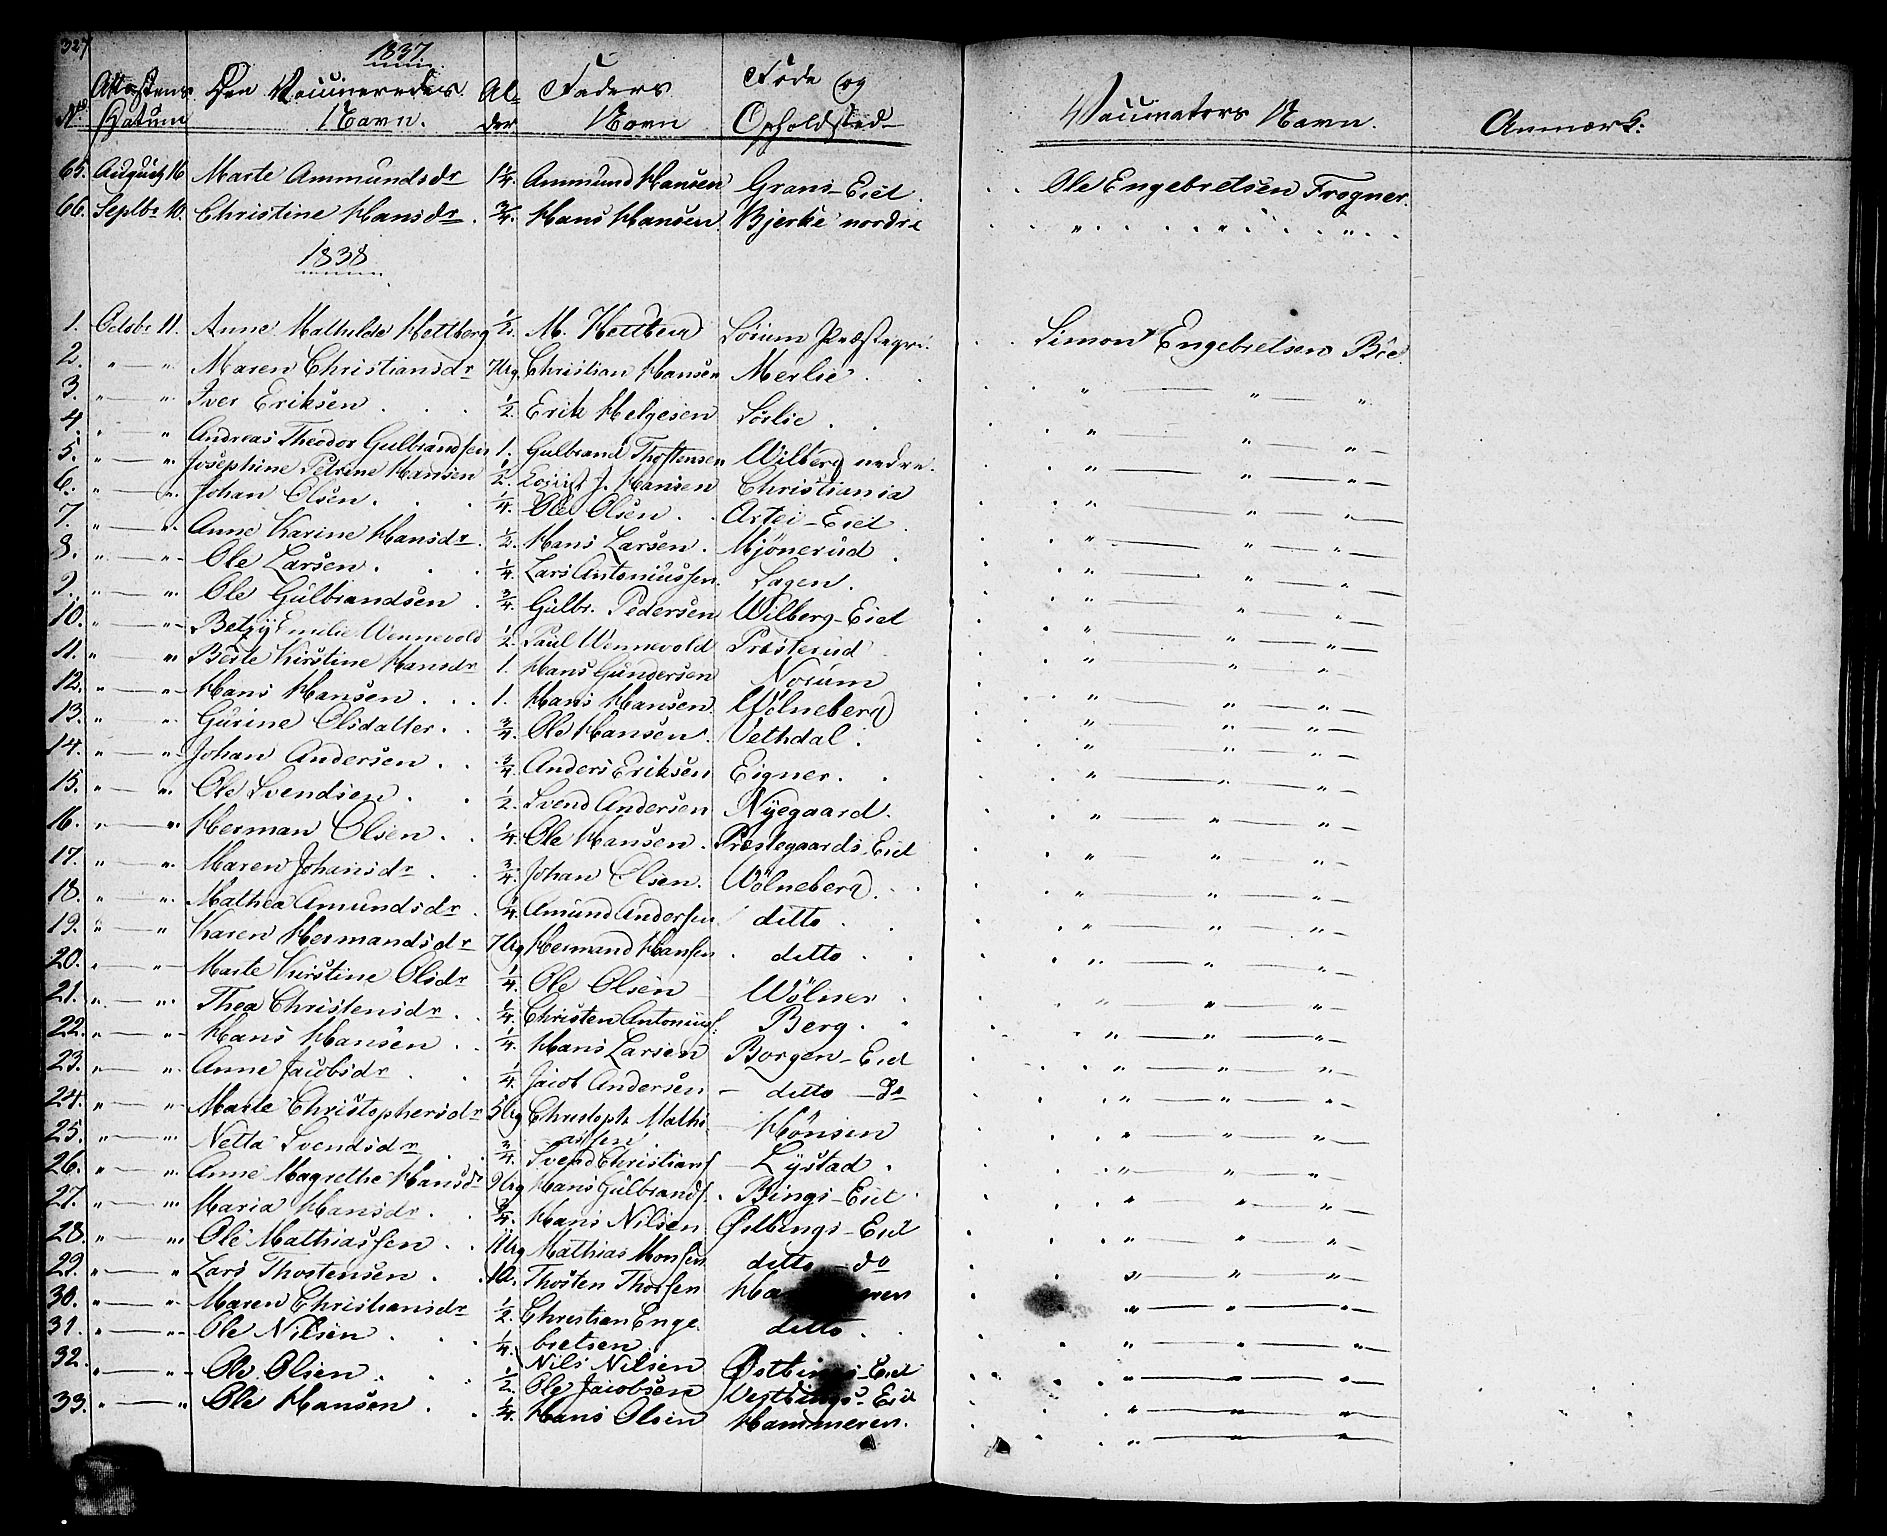 327
1837
No Attestens Datum Den Vaccineredes Navn. Alder Faders Navn Føde og Opholdsted Vaccinators Navn. Anmærk:
65. August 16 Marte Ammundsdr 1/4. Ammund Hansen Grans-Eiet. Ole Engebretsen Frogner.
66. Septbr 10. Christine Hansdr. 3/4. Hans Hansen Bjerke nordre " " "
1838
1. Octobr 11. Anne Mathilde Hettberg 1/2. M. Hettberg Sørum Præstegrd. Simon Engebretsen Böe
2. " — " Maren Christiansdr 7 Ug Christian Hansen Merlie. " — " — "
3. " — " Iver Eriksen . . . 1/2. Erik Helgesen Sörlie. " — " — "
4. " — " Andreas Theodor Gulbrandsen 1. Gulbrand Thostensen Wilberg nedre. " — " — "
5. " — " Josephine Petrine Hansen 1/2. J. Hansen Christiania " — " — "
6. " — " Johan Olsen . . . 1/4. Ole Olsen . . Aster-Eiet " — " — "
7. " — " Anne Karine Hansdr. 1/2. Hans Larsen . Mjönerud . " — " — "
8. " — " Ole Larsen . . . 1/4. Lars Antoniussen. Sagen. " — " — "
9. " — " Ole Gulbrandsen . 3/4. Gulbr. Pedersen Wilberg-Eiet " — " — "
10. " — " Betzy Emilie Wennevold 1/2. Paul Wennevold Præsterud " — " — "
11. " — " Berte Kirstine Hansdr 1. Hans Gundersen Norum " — " — "
12. " — " Hans Hansen . . . 1. Hans Hansen. Wölneberg " — " — "
13. " — " Gurine Olsdatter . . 3/4. Ole Hansen. Vethdal. " — " — "
14. " — " Johan Andersen . . 3/4. Anders Eriksen Eigner. . " — " — "
15. " — " Ole Svendsen . . 1/2. Svend Andersen Nyegaard. " — " — "
16. " — " Herman Olsen . . 1/4. Ole Hansen . Præstegaards-Eiet " — " — "
17. " — " Maren Johansdr . . 3/4. Johan Olsen. Wölneberg. . . " — " — "
18. " — " Mathea Amundsdr . 1/4. Amund Andersen ditto . " — " — "
19. " — " Karen Hermandsdr 7 Ug Hermand Hansen . ditto . . " — " — "
20. " — " Marte Kirstine Olsdr 1/4. Ole Olsen — Wölner . " — " — "
21. " — " Thea Christensdr . . 1/4. Christen Antonius: Berg . . " — " — "
22. " — " Hans Hansen . . 1/4. Hans Larsen Borgen-Eiet " — " — "
23. " — " Anne Jacobsdr . . 1/4. Jacob Andersen — ditto — do " — " — "
24. " — " Marte Christophersdr 5 Ug Christoph. Mathi- Hönsen " — " — "
assen.
25. " — " Netta Svendsdr . . 3/4. Svend Christians — Lystad . " — " — "
26. " — " Anne Magrethe Hansdr 9 Ug Hans Gulbrands . Bings-Eiet . " — " — "
27. " — " Maria Hansdr . . 3/4. Hans Nilsen Østbings-Eiet " — " — "
28. " — " Ole Mathiassen . . 11 Ug Mathias Monsen ditto do " — " — "
29. " — " Lars Thostensen . . 10. Thosten Thorsen Ha eren " — " — "
30. " — " Maren Christiansdr 1/2. Christian Enge- ditto . . " — " — "
bretsen
31. " — " Ole Nilsen . . . 1/4. Nils Nilsen Østbings-Eiet " — " — "
32. " — " Ole Olsen . . . 1/2. Ole Jacobsen Vestbings-Eiet " — " — "
33. " — " Ole Hansen . . 1/4. Hans Olsen Hammeren. " — " — "